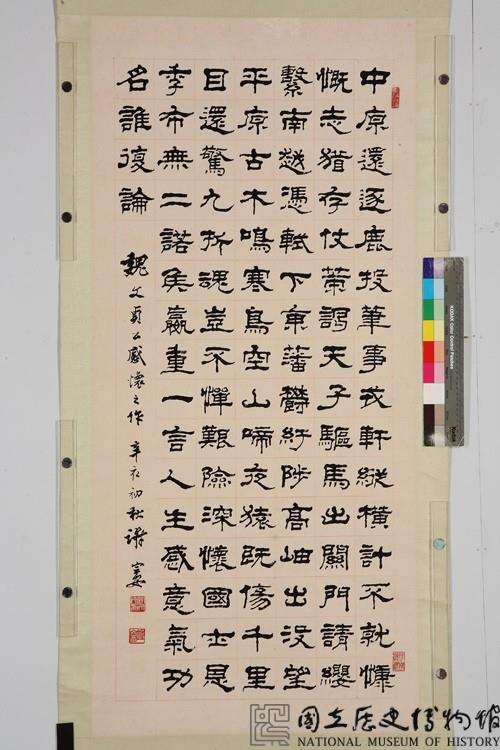 中原還逐鹿投筆事戎軒縱橫計不就慷
慨志猶存仗策謁天子驅馬出關門請纓
繫南越憑軾下東藩鬱紆陟高岫出沒望
平原古木鳴寒鳥空山啼夜猿既傷千里
目還驚九折魂豈不憚艱險深懷國士恩
季布無二諾侯嬴重一言人生感意氣功
名誰復論
魏文貞公感懷之作 辛亥初秋謝宗安
KODAK Color Control Patches
國立歷史博物館
NATIONAL MUSEUM OF HISTORY